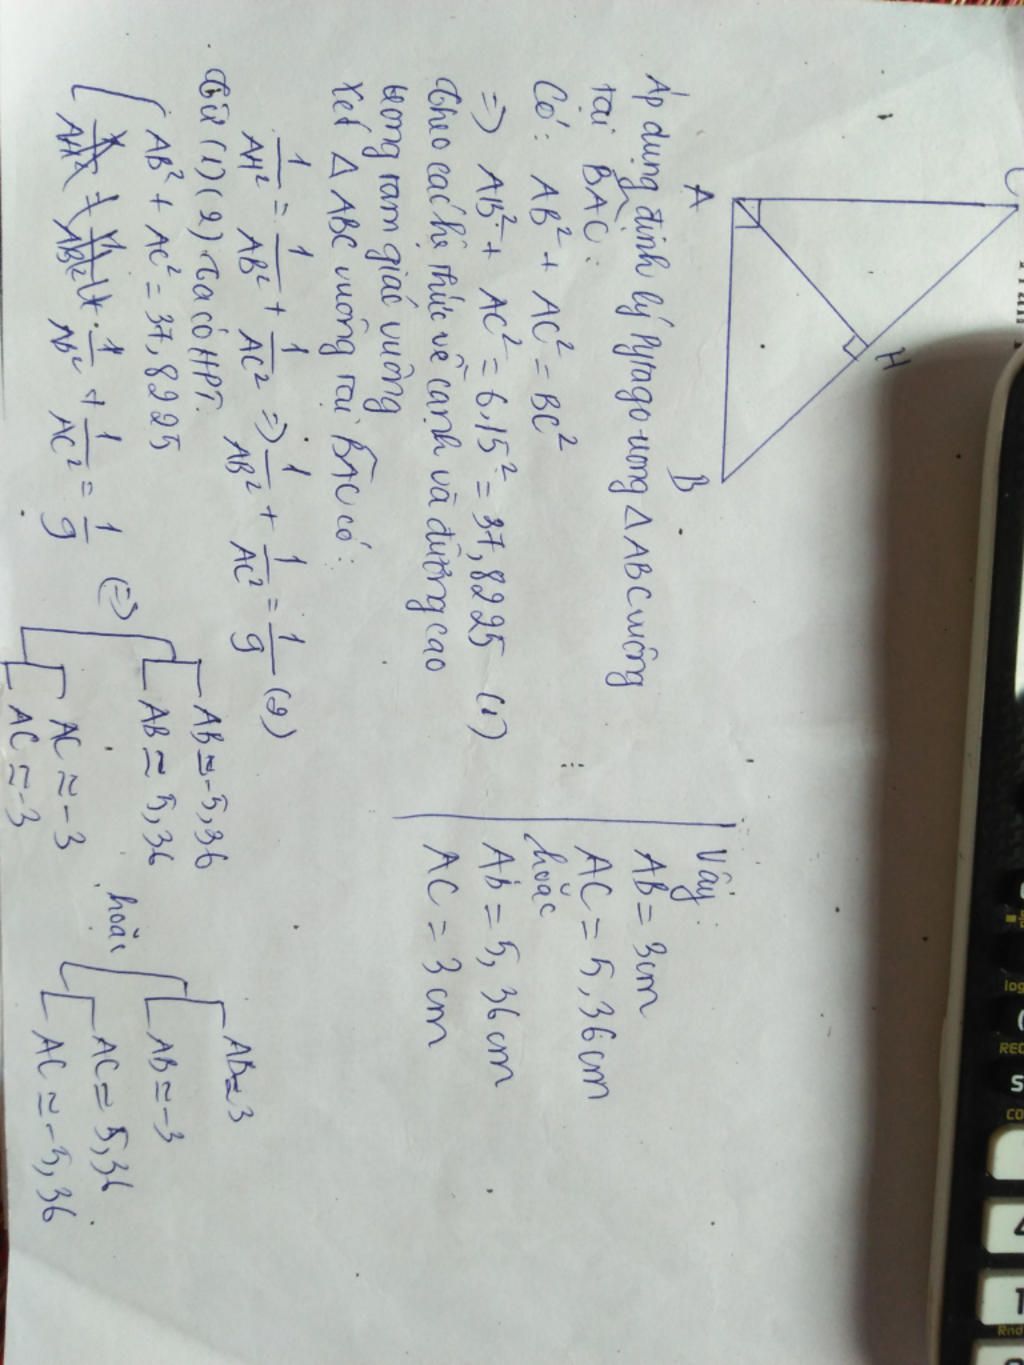 C
A
H
B
Áp dụng định lý Pytago trong △ABC vuông
tại BAC:
Có: AB² + AC² = BC²
=> AB² + AC² = 6,15² = 37,8225 (1)
Theo các hệ thức về cạnh và đường cao
trong tam giác vuông
Xét △ABC vuông tại BAC có:
1/AH² = 1/AB² + 1/AC² => 1/AB² + 1/AC² = 1/9 (2)
Từ (1)(2) ta có HPT:
AB² + AC² = 37,8225
1/AB² + 1/AC² = 1/9 (=)
AB ≈ -5,36
AB ≈ 5,36
AC ≈ -3
AC ≈ -3
hoặc
AB ≈ 3
AB ≈ -3
AC ≈ 5,36
AC ≈ -5,36
Vậy:
AB = 3cm
AC = 5,36cm
hoặc
AB = 5,36cm
AC = 3cm
log
REC
S
CO
1
Rnd